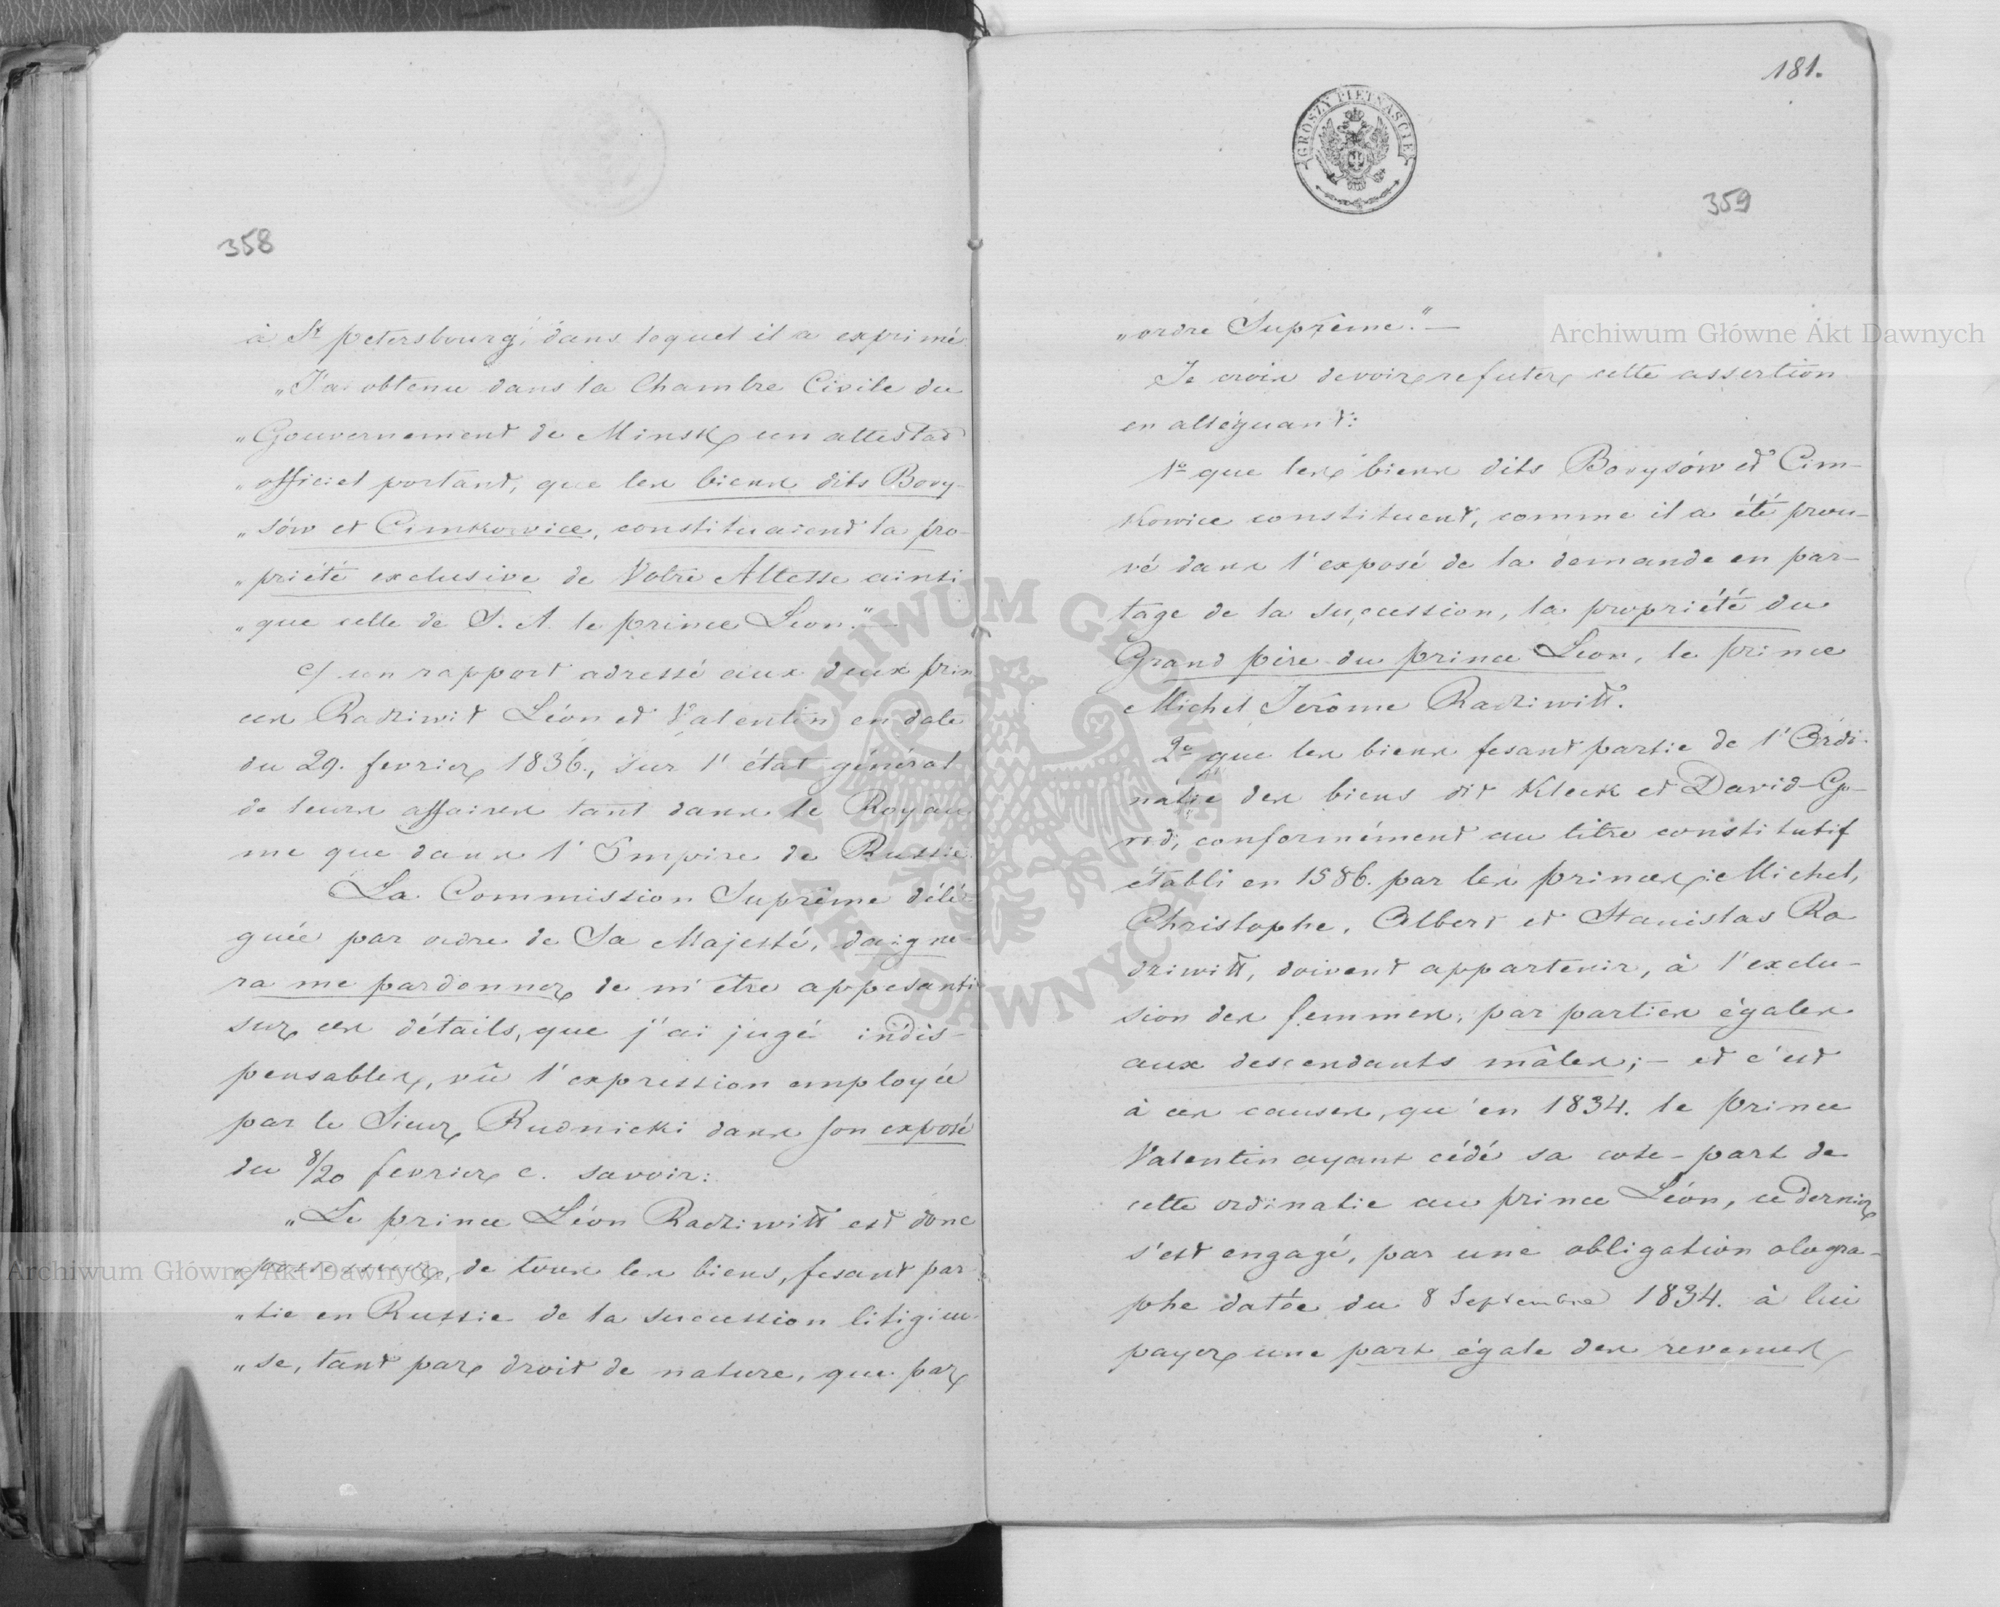 358
à St petersbourg, dans lequel il a exprimé
„J'ai obtenu dans la Chambre Civile du
„Gouvernement de Minsk un attestat
„officiel portant, que les biens dits Bory-
„sów et Cimkowice, constituaient la pro-
„priété exclusive de Votre Altesse ainsi
„que celle de S. A. le prince Léon."—
c/ un rapport adressé aux deux prin
ces Radziwił Léon et Valentin en date
du 29. fevrier 1836., sur l'état général
de leurs affaires tant dans le Royau
me que dans l'Empire de Russie.
La Commission Suprême délé-
guée par ordre de Sa Majesté, daigne-
ra me pardonner de m'etre appesanti
sur ces détails, que j'ai jugé indis-
pensables, vû l'expression employée
par le Sieur Rudnicki dans son exposé
du 8/20 fevrier c. savoir:
„Le prince Léon Radziwiłł est donc
„possesseur, de tous les biens, fesant par-
„tie en Russie de la succession litigieu-
„se, tant par droit de nature, que par
181.
GROSZY PIETNAŚCIE
359
„ordre Suprême."—
Je crois devoir refuter cette assertion
en alléguant:
1º que les biens dits Borysów et Cim-
kowice constituent, comme il a été prou-
vé dans l'exposé de la demande en par-
tage de la succession, la propriété du
Grand père du prince Léon, le prince
Michel Jerôme Radziwiłł.
2º que les biens fesant partie de l'Ordi-
natie des biens dit Kleck et David-Go-
rod, conformément au titre constitutif
établi en 1586. par les princes: Michel,
Christophe, Albert et Stanislas Ra
dziwiłł, doivent appartenir, à l'exclu-
sion des femmes, par parties égales
aux descendants mâles;— et c'est
à ces causes, qu'en 1834. le prince
Valentin ayant cédé sa cote-part de
cette ordinatie au prince Léon, ce dernier
s'est engagé, par une obligation ologra-
phe datée du 8 Septembre 1834. à lui
payer une part égale des revenus
Archiwum Główne Akt Dawnych
Archiwum Główne Akt Dawnych
ARCHIWUM GŁÓWNE AKT DAWNYCH